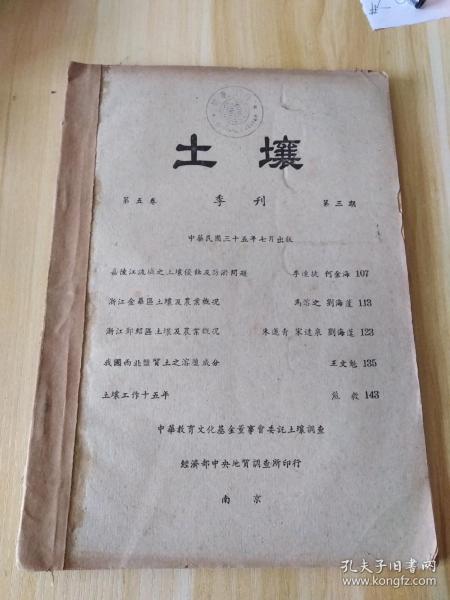 土壤
第五卷 季刊 第三期
中華民國三十五年七月出版
嘉陵江流域之土壤侵蝕及防淤問題 李連捷 何金海 107
浙江金華區土壤及農業概況 馬溶之 劉海蓬 113
浙江鄞紹區土壤及農業概況 朱蓮青 宋達泉 劉海蓬 123
我國西北鹽質土之溶鹽成分 王文魁 135
土壤工作十五年 熊毅 143
中華教育文化基金董事會委託土壤調查
經濟部中央地質調查所印行
南京
孔夫子旧书网
www.kongfz.com